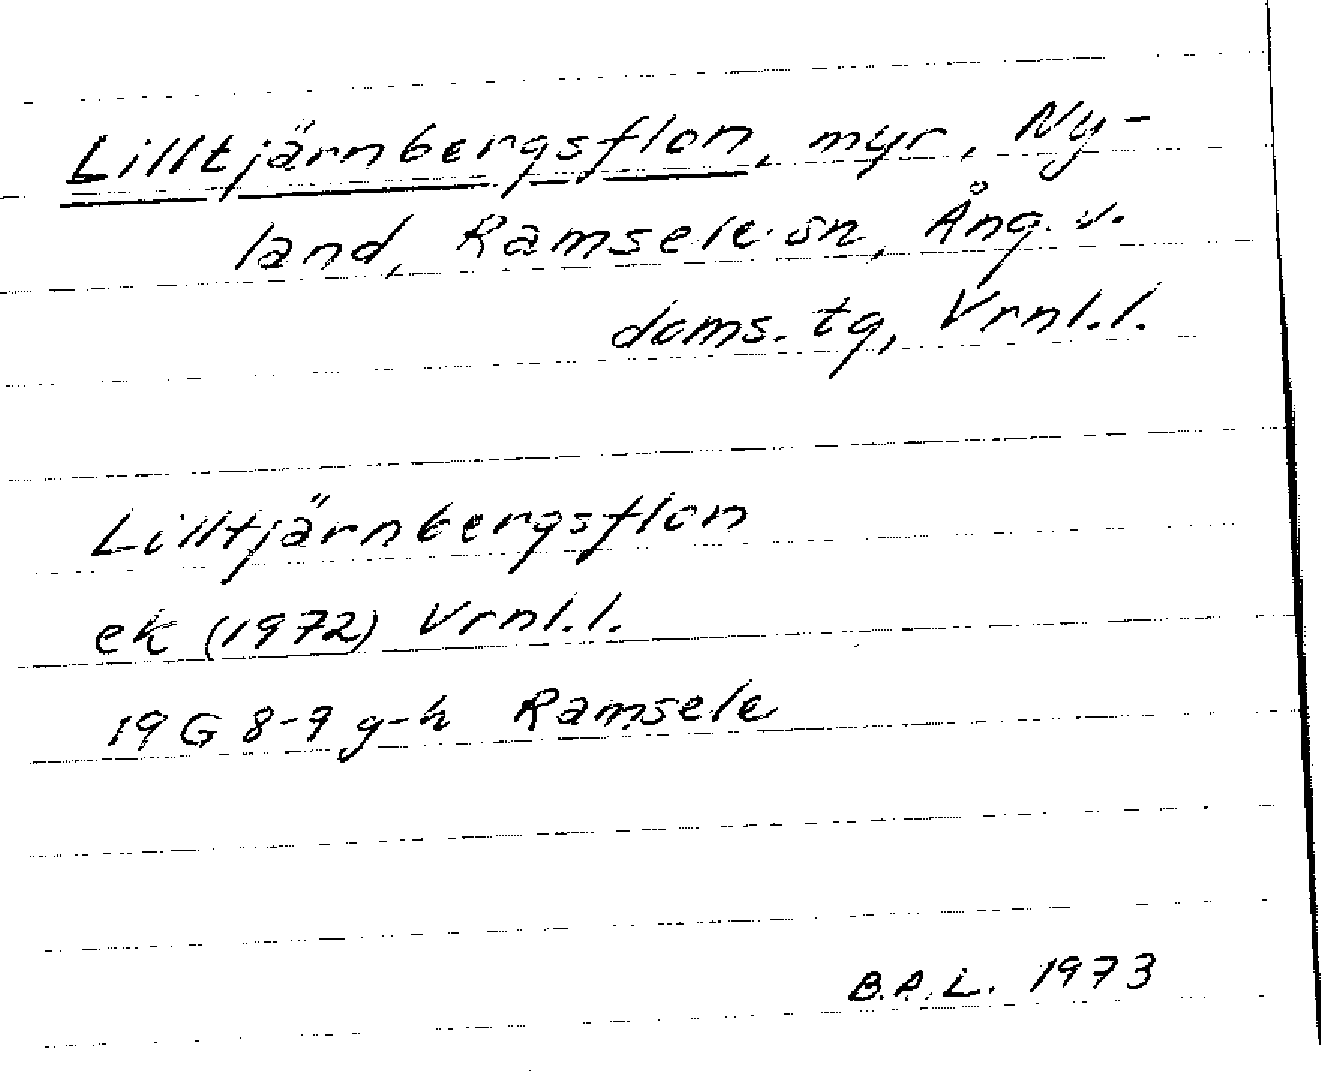 Lilltjärnbergsflon, myr, Ny-
land, Ramsele sn, Ång. v.
doms. tg, Vrnl.l.
Lilltjärnbergsflon
ek (1972) Vrnl.l.
19 G 8-9 g-h Ramsele
B.A.L. 1973